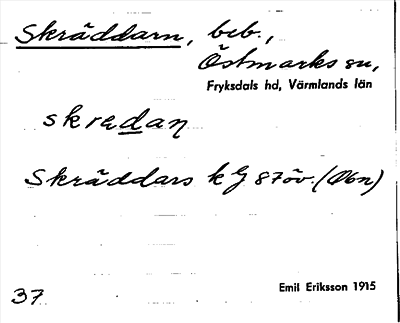 Skräddarn, beb.,
Östmarks sn,
Fryksdals hd, Värmlands län
skredan
Skräddars k G 87öv. (Obn)
Emil Eriksson 1915
37